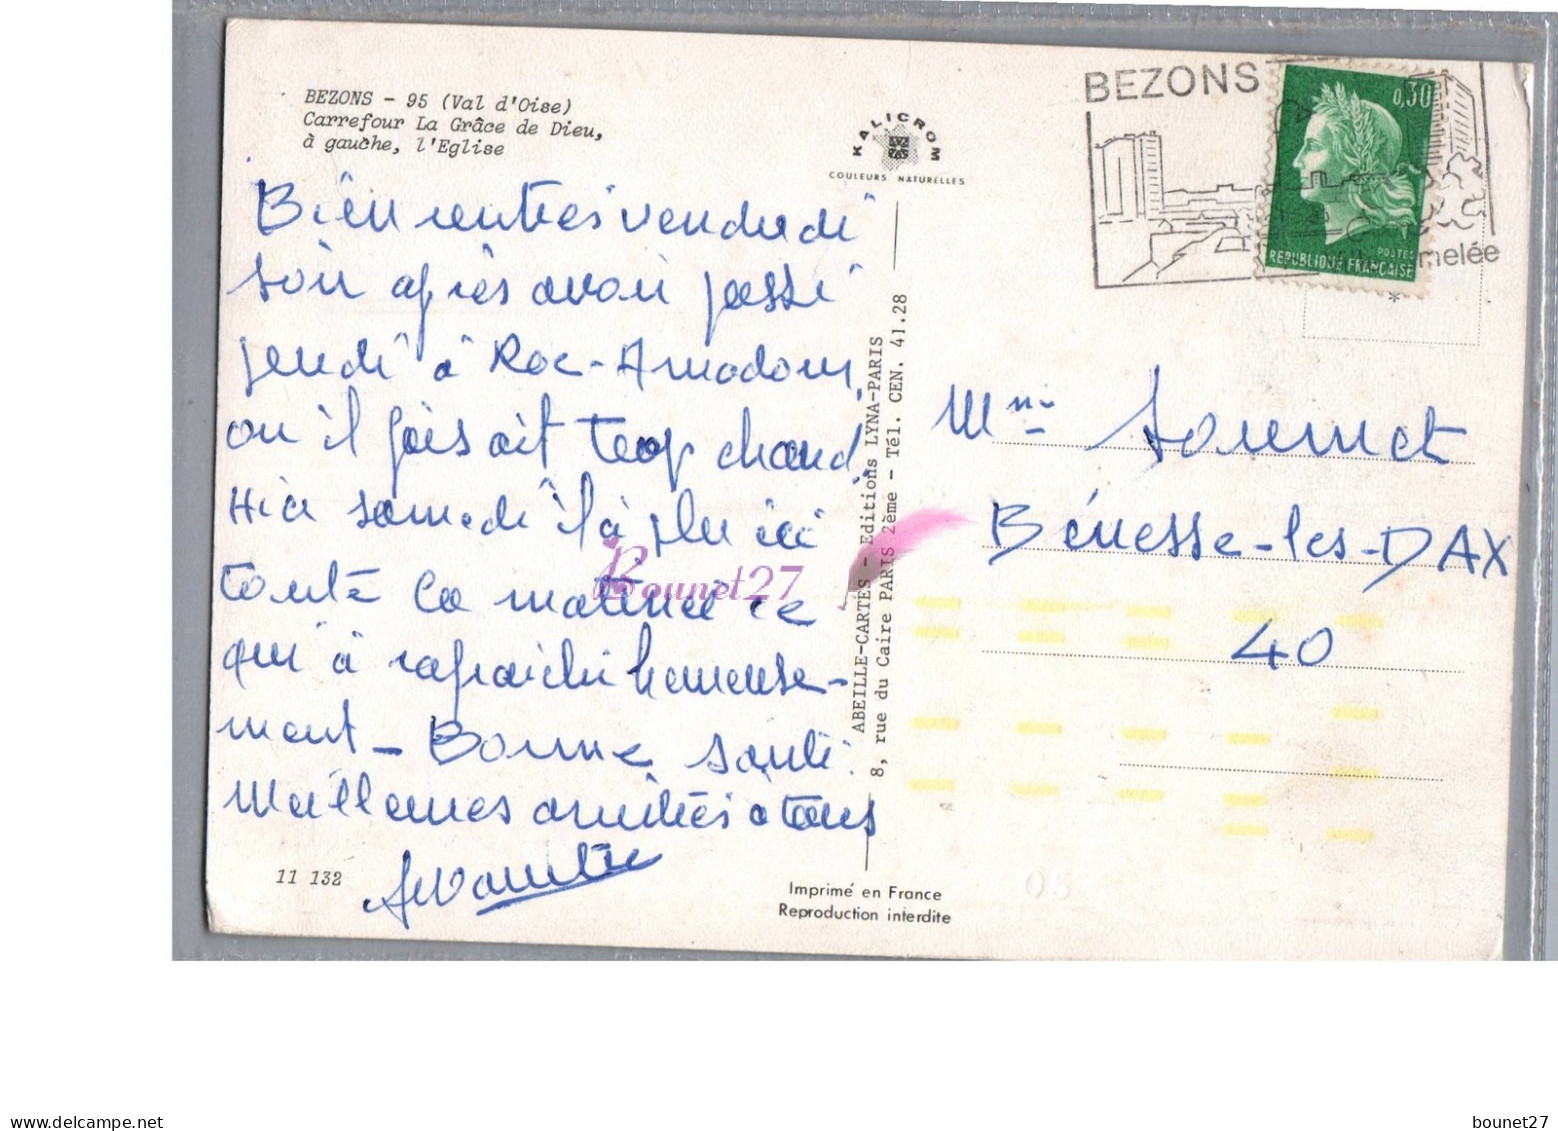 BEZONS - 95 (Val d'Oise)
Carrefour La Grâce de Dieu,
à gauche, l'Eglise
KALICROM
COULEURS NATURELLES
BEZONS
0,30
POSTES
REPUBLIQUE FRANCAISE
melée
*
Bien rentrés vendredi
soir après avoir passé
jeudi à Roc-Amadour,
ou il faisait trop chaud,
Hier samedi il à plu ici
toute la matinée ce
qui à rafraichi heureuse-
ment - Bonne santé.
Meilleures amitiés à tous
Mme
Bénesse-les-DAX
40
ABEILLE-CARTES - Editions LYNA-PARIS
8, rue du Caire PARIS 2ème - Tél. CEN. 41.28
Bounet27
11 132
Imprimé en France
Reproduction interdite
05
https://www.delcampe.net
bounet27